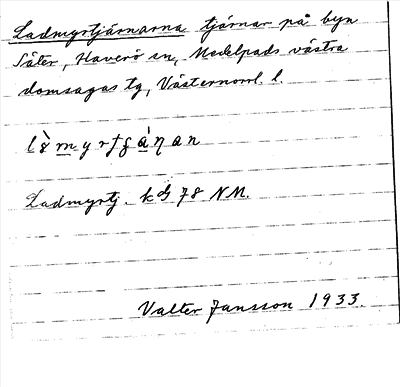 Ladmyrtjärnarna tjärnar på byn
Säter, Haverö sn, Medelpads västra
domsagas tg, Västernorrl. l.
Ladmyrtj. kbl 78 NM.
Valter Jansson 1933.